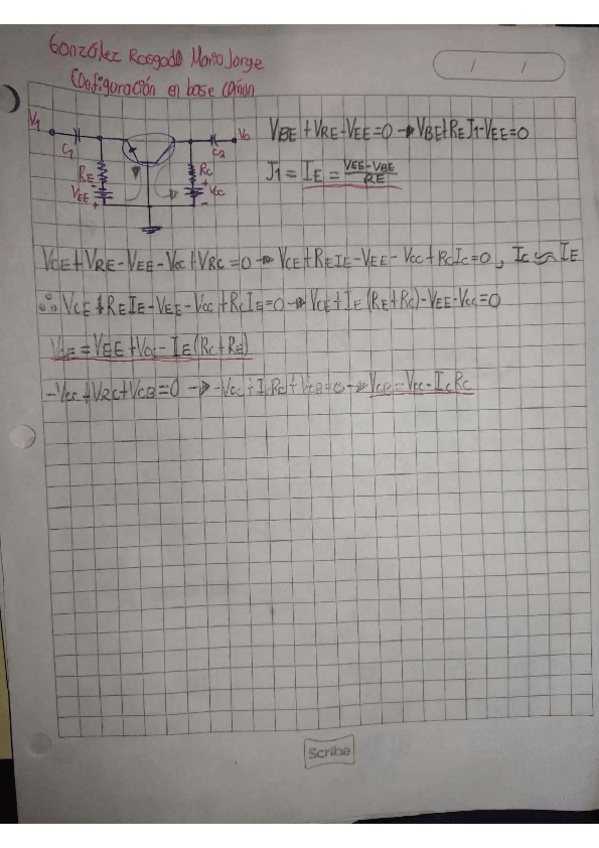 González Rosgado Mario Jorge
Configuración en base común
V1
C1
C2
Vo
RE
VEE
+
RC
+
VCC
-
VBE + VRE - VEE = 0 → VBE + RE J1 - VEE = 0
J1 = IE = VEE - VBE / RE
VCE + VRE - VEE - VCC + VRC = 0 → VCE + RE IE - VEE - VCC + RC IC = 0, IC ≈ IE
∴ VCE + RE IE - VEE - VCC + RC IE = 0 → VCE + IE (RE + RC) - VEE - VCC = 0
VCE = VEE + VCC - IE (RC + RE)
-VCC + VRC + VCB = 0 → -VCC + IC RC + VCB = 0 → VCB = VCC - IC RC
Scribe